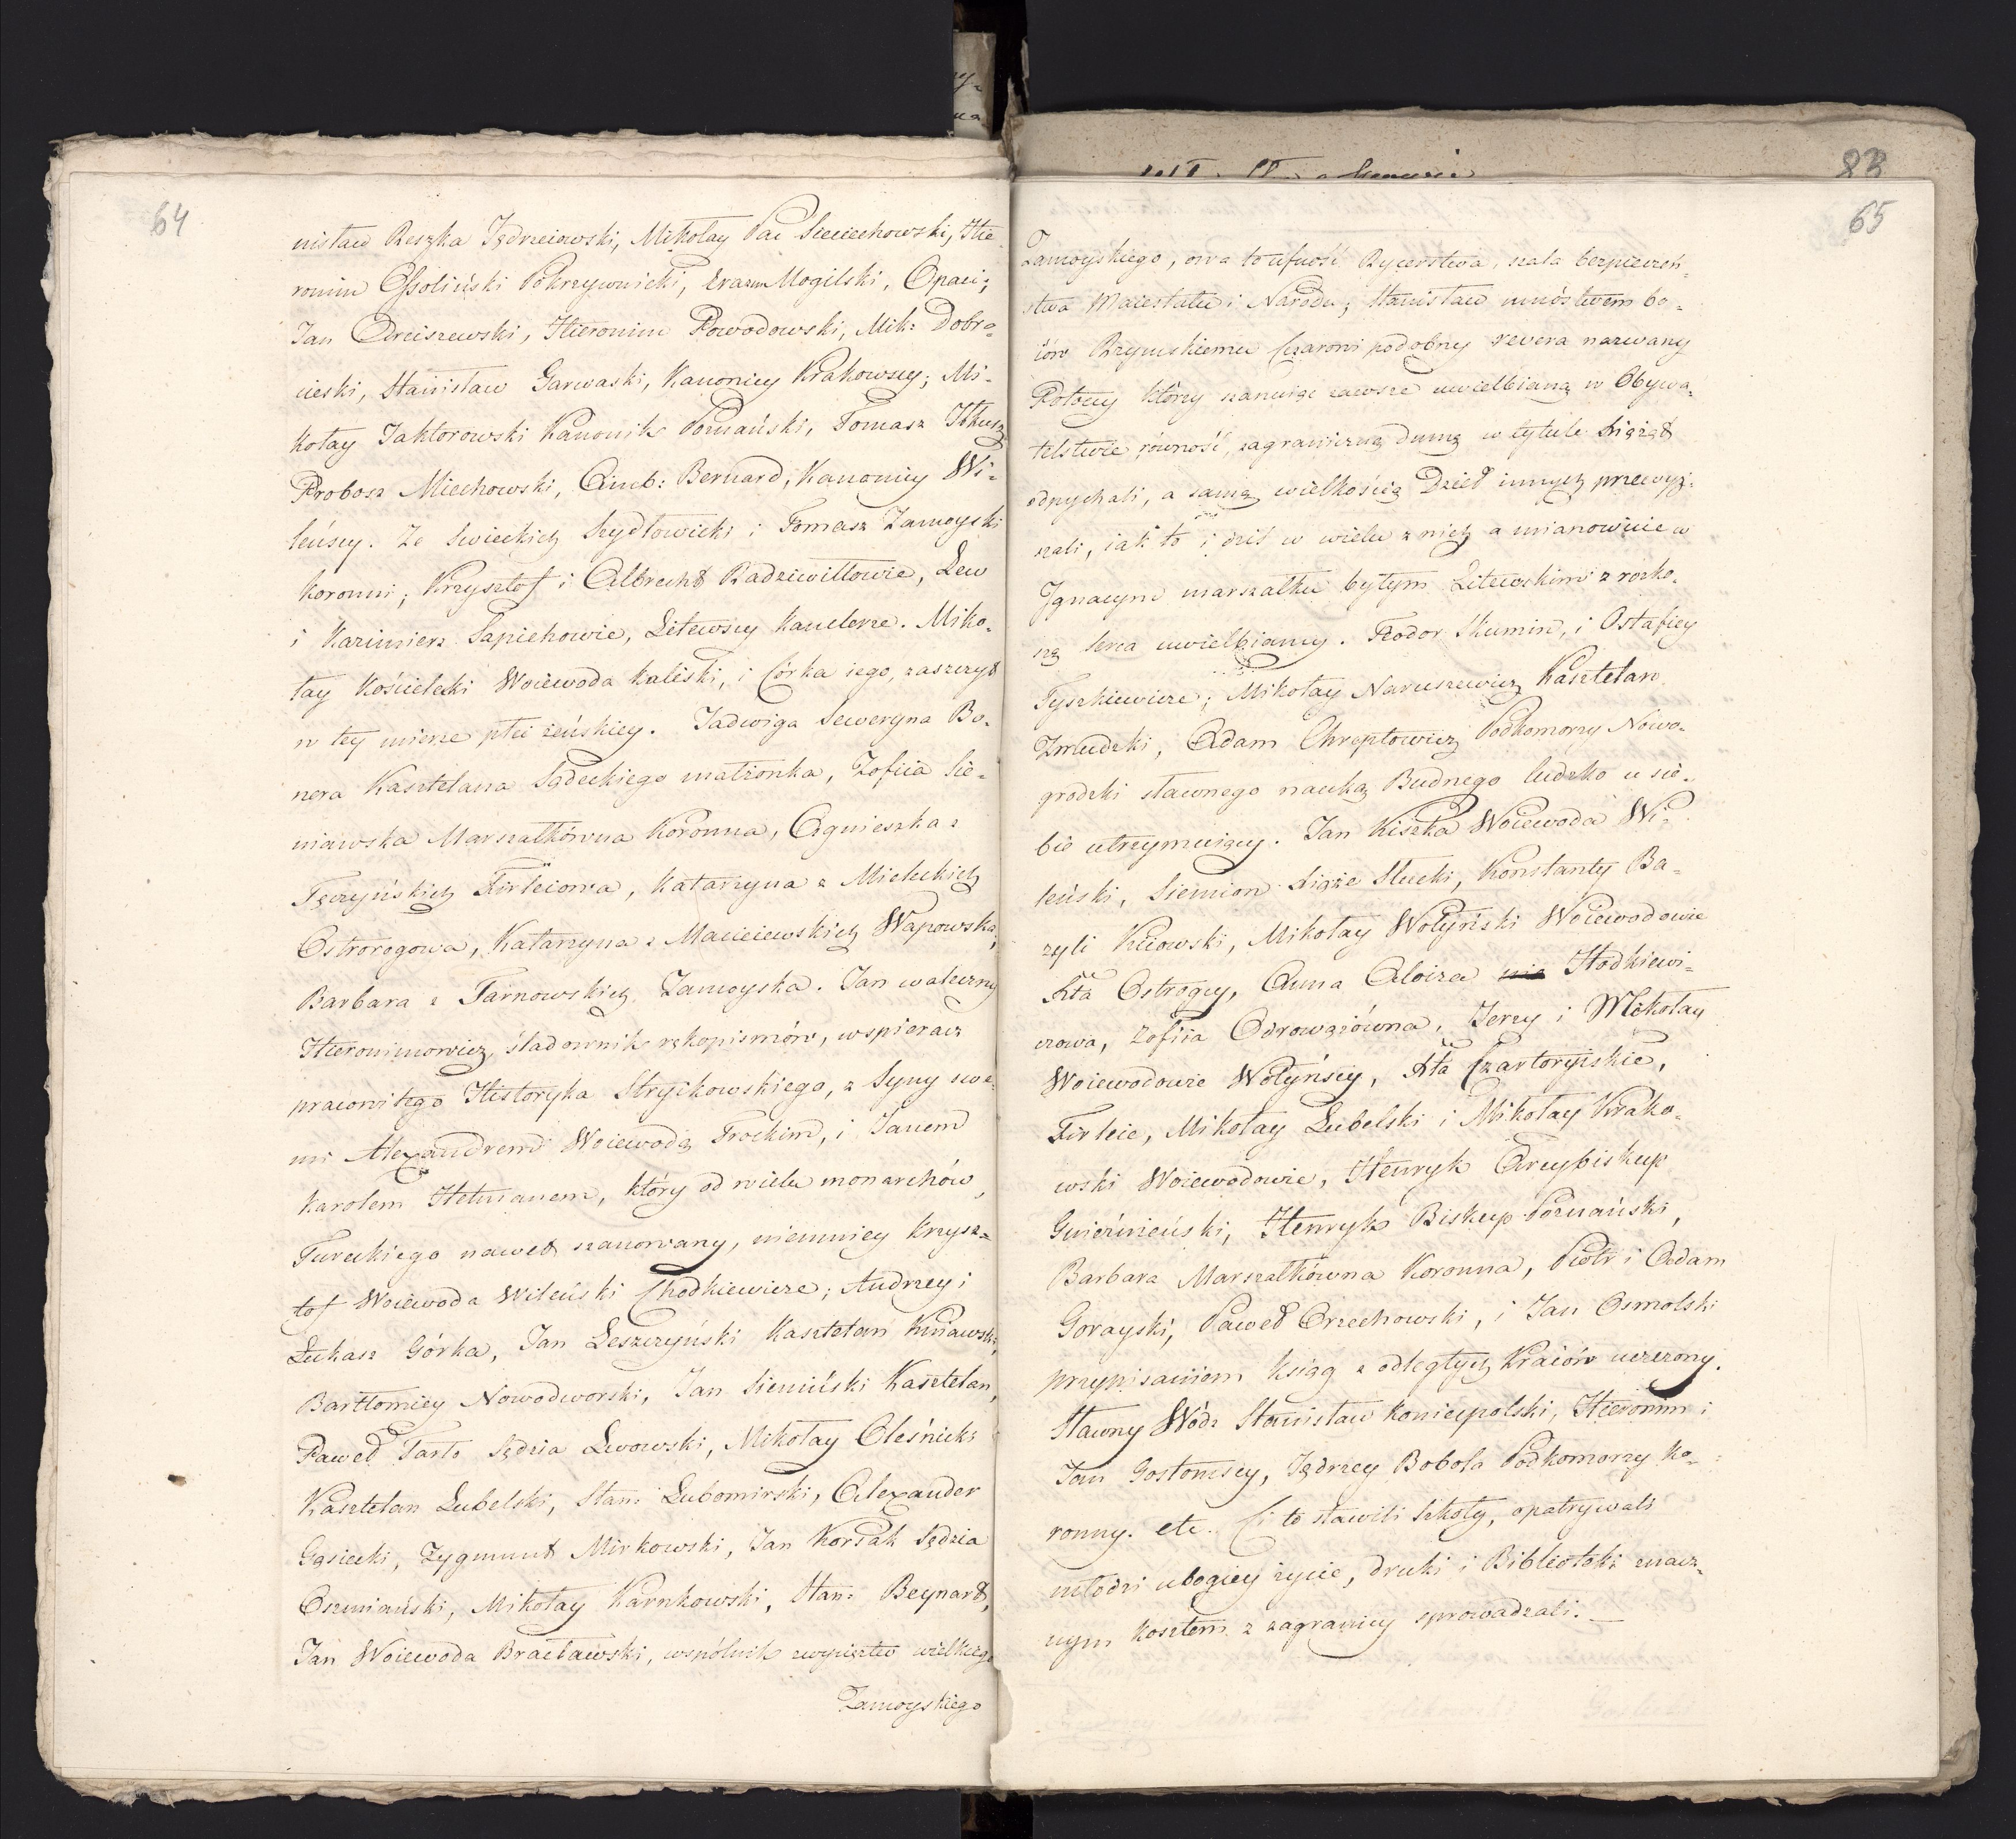 64
nisław Reszka Jędrzeiowski, Mikołay Pac Sieciechowski, Hie-
ronim Ossoliński Pokrzywnicki, Erazm Mogilski, Opaci;
Jan Dreiszewski, Hieronim Powodowski, Mik: Dobro-
cieski, Stanisław Garwaski, Kanonicy Krakowscy; Mi-
kołay Jaktorowski Kanonik Poznański, Tomasz Ilkusz
Probosz Miechowski, Amb: Bernard, Kanonicy Wi-
leńscy. Ze Swieckich Szydłowicki i Tomasz Zamoyski
Koronni; Krzysztof i Albrecht Radziwiłłowie, Lew
i Kazimierz Sapiehowie, Litewscy Kanclerze. Miko-
łay Kościelecki Woiewoda Kaliski, i Córka iego, zaszczyt
w tey mierze płci żeńskiey. Jadwiga Seweryna Bo-
nera Kasztelana Sądeckiego małżonka, Zofiia Sie-
niawska Marszałkówna Koronna, Agnieszka z
Tęczyńskich Firleiowa, Katarzyna z Mieleckich
Ostrorogowa, Katarzyna z Macieiewskich Wapowska,
Barbara z Tarnowskich Zamoyska. Jan waleczny
Hieronimowicz, śladownik rękopismów, wspieracz
pracowitego Historyka Stryikowskiego, z Syny swe-
mi Alexandrem Woiewodą Trockim, i Janem
Karolem Hetmanem, który od wielu monarchów,
Tureckiego nawet szanowany, niemniey Krzysz-
tof Woiewoda Wileński Chodkiewicze; Andrzey i
Łukasz Górka, Jan Leszczyński Kasztelan Kuiawski,
Bartłomiey Nowodworski, Jan Sieniński Kasztelan,
Paweł Tarło Sędzia Lwowski, Mikołay Oleśnicki
Kasztelan Lubelski, Stan: Lubomirski, Alexander
Gąsiecki, Zygmunt Mirkowski, Jan Korsak Sędzia
Oszmiański, Mikołay Karnkowski, Stan: Beynart,
Jan Woiewoda Bracławski, wspólnik zwycięztw wielkiego
Zamoyskiego
83
65
Zamoyskiego, owa to ufność Rycerstwa, szala bezpieczeń-
stwa Maiestatu i Narodu; Stanisław mnóstwem bo-
iów Rzymskiemu Czaroni podobny revera nazwany
Potoccy którzy szanuiąc zawsze uwielbianą w Obywa-
telstwie równość, zagraniczną dumę w tytule Xiążąt
odpychali, a samą wielkością Dzieł innych przewyż-
szali, iak to i dziś w wielu z nich a mianowicie w
Ignacym marszałku byłym Litewskim z rozko-
szą serca uwielbiamy. Teodor Skumin, i Ostafiey
Tyszkiewicze; Mikołay Naruszewicz Kasztelan
Zmudzki, Adam Chreptowicz Podkomorzy Nowo-
grodzki sławnego nauką Budnego ludzko u sie-
bie utrzymuiący. Jan Kiszka Woiewoda Wi-
leński, Siemion Xiąże Słucki, Konstanty Ba-
zyli Kiiowski, Mikołay Wołyński Woiewodowie
Xta Ostrogcy, Anna Aloiza Hodkiewi-
czowa, Zofiia Odrowążówna, Jerzy i Mikołay
Woiewodowie Wołyńscy, Xta Czartoryiskie,
Firleie, Mikołay Lubelski i Mikołay Krako-
wski Woiewodowie, Henryk Arcybiskup
Gnieźnieński, Henryk Biskup Poznański,
Barbara Marszałkówna Koronna, Piotr i Adam
Gorayski, Paweł Orzechowski, i Jan Osmolski
przypisaniem ksiąg z odległych Kraiów uczczony.
Sławny Wódz Stanisław Koniecpolski, Hieronim i
Jan Gostomscy, Jędrzey Bobola Podkomorzy Ko-
ronny. etc. Ci to stawili Szkoły, opatrywali
młodzi ubogiey życie, druki i Biblioteki znacz-
nym kosztem z zagranicy sprowadzali. —